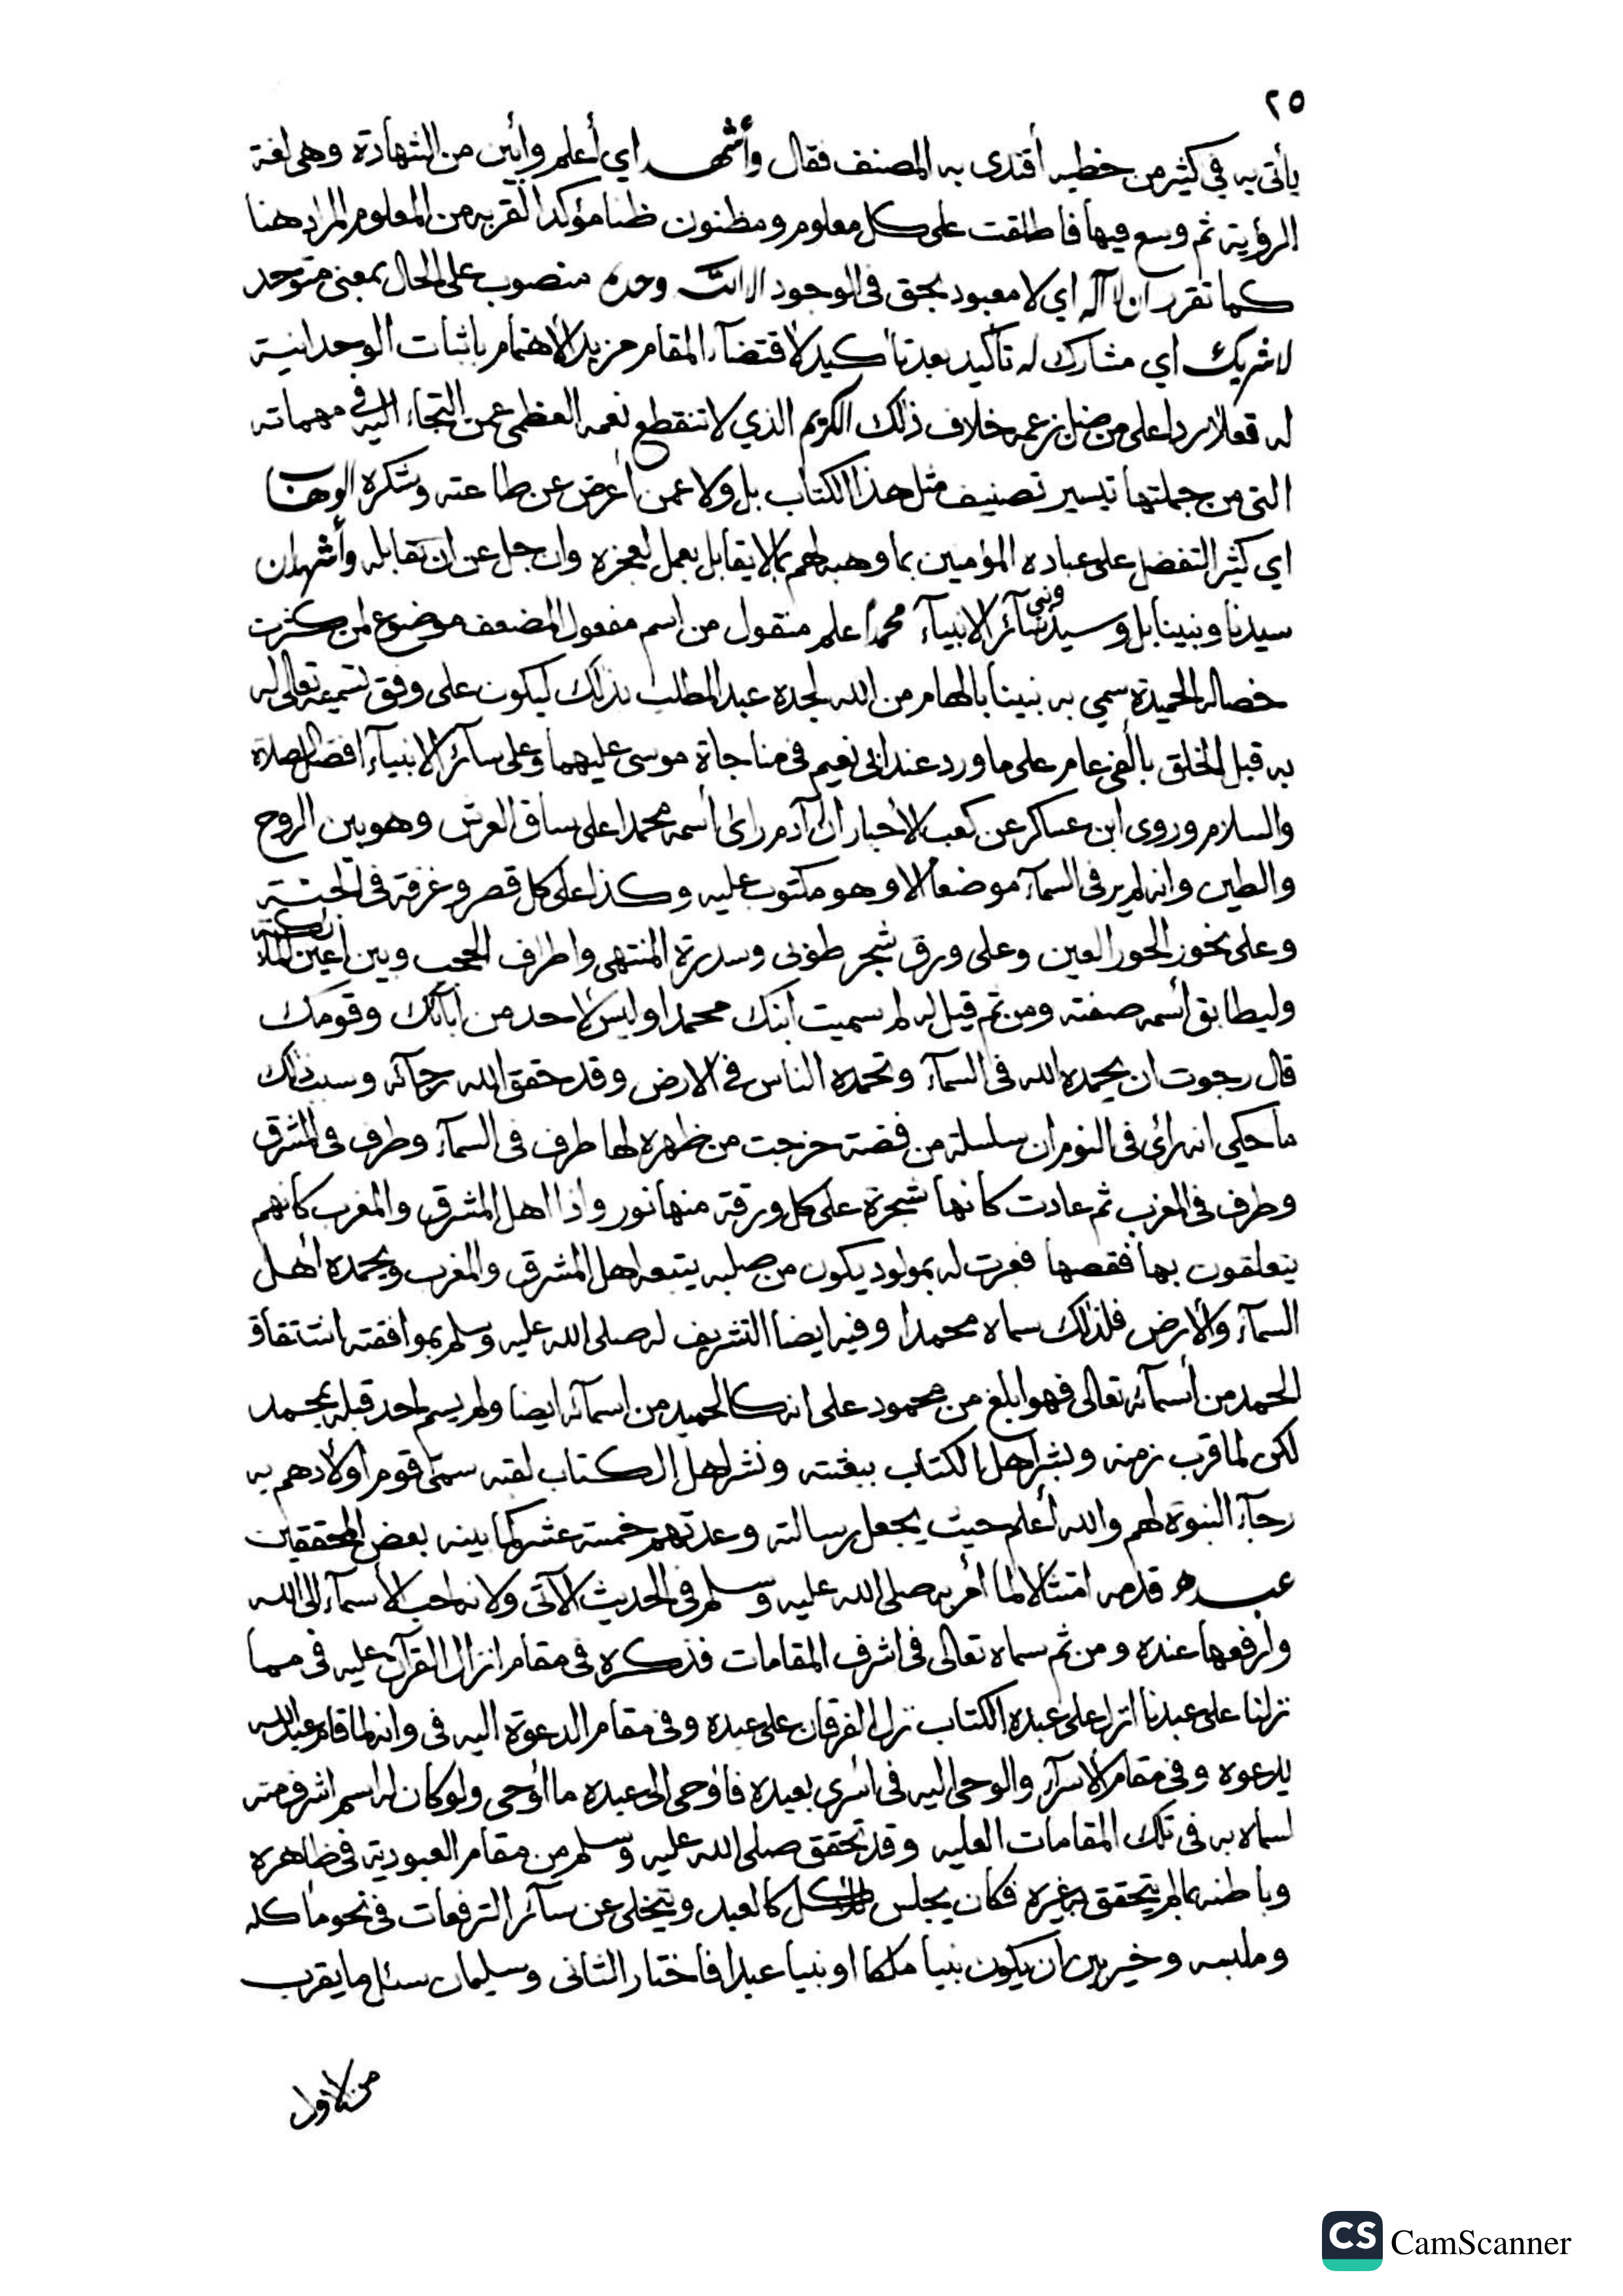 ٢٥
يأتي به في كثير من خطبه أقتدى به المصنف فقال وأشهد اي أعلم وأبين من الشهادة وهي لغة
الرؤية ثم وسع فيها فأطلقت على كل معلوم ومظنون ظنا مؤكدا لقربه من المعلوم المراد هنا
كما تقرر ان لا آله اي لا معبود بحق في الوجود الا الله وحده منصوب على الحال بمعنى متوحد
لا شريك اي مشارك له تأكيد بعد تأكيد لاقتضآء المقام مزيد الاهتمام باثبات الوحدانية
له تعالى ردا على من ضل بزعمه خلاف ذلك الكريم الذي لا تنقطع نعمه العظمى عمن التجاء اليه في مهماته
التي من جملتها تيسير تصنيف مثل هذا الكتاب بل ولا عمن أعرض عن طاعته وشكره الوهاب
اي كثير التفضل على عباده المؤمنين بما وهبه لهم مما لا يقابل بعمل لعجزه وان جل عن ان تقابله وأشهد ان
سيدنا ونبينا بل وسيد ونبي سآئر الانبيآء محمدا علم منقول من اسم مفعول المضعف موضوع لمن كثرت
خصاله الحميدة سمي به نبينا بالهام من الله لجده عبد المطلب بذلك ليكون على وفق تسميته تعالى له
به قبل الخلق بألفي عام على ما ورد عند ابي نعيم في مناجاة موسى عليهما وعلى سآئر الانبيآء افضل الصلاة
والسلام وروى ابن عساكر عن كعب الأحبار ان آدم رأى أسم محمدا على ساق العرش وهو بين الروح
والطين وانه لم ير في السمآء موضعا الا وهو مكتوب عليه وكذا على كل قصر وغرفة في الجنة
وعلى نحور الحور العين وعلى ورق شجر طوبى وسدرة المنتهى واطراف الحجب وبين أعين الملآئكة
وليطابق أسمه صفته ومن ثم قيل له لم سميت ابنك محمدا وليس لاحد من ابآئك وقومك
قال رجوت ان يحمده الله في السمآء وتحمده الناس في الارض وقد حقق الله رجآئه وسبب ذلك
ما حكي انه رأى في النوم ان سلسلة من فضة خرجت من ظهره لها طرف في السمآء وطرف في المشرق
وطرف في المغرب ثم عادت كانها شجرة على كل ورقة منها نور واذا اهل المشرق والمغرب كانهم
يتعلقون بها فقصها فعبرت له بمولود يكون من صلبه يتبعه اهل المشرق والمغرب ويحمده اهل
السمآء والأرض فلذلك سماه محمدا وفيه ايضا التشريف له صلى الله عليه وسلم بموافقته اشتقاق
الحمد من أسمآئه تعالى فهو ابلغ من محمود على انه كالحميد من اسمآئه ايضا ولم يسم احد قبله بمحمد
لكن لما قرب زمنه وبشر اهل الكتاب ببعثته ونشر اهل الكتاب لقته سمى قوم أولادهم به
رجآء النبوة لهم والله أعلم حيث يجعل رسالته وعدتهم خمسة عشر كما بينه بعض المحققين
عبده قدمه امتثالا لما أمر به صلى الله عليه وسلم في الحديث الآتي ولانه احب الأسمآء الى الله
وارفعها عنده ومن ثم سماه تعالى في اشرف المقامات فذكره في مقام انزال القرآن عليه في مما
نزلنا على عبدنا انزل على عبده الكتاب نزل الفرقان على عبده وفي مقام الدعوة اليه في وانه لما قام عبد الله
يدعوه وفي مقام الأسرآء والوحي اليه في اسرى بعبده فاوحى الى عبده ما أوحى ولو كان له اسم اشرف منه
لسماه به في تلك المقامات العليه وقد تحقق صلى الله عليه وسلم من مقام العبودية في ظاهره
وباطنه بما لم يتحقق به غيره فكان يجلس للاكل كالعبد ويتخلى عن سآئر الترفعات في نحو مأكله
وملبسه وخير بين ان يكون نبيا ملكا او نبيا عبدا فأختار الثاني وسليمان سئل ما يقرب
من الاول
CS CamScanner